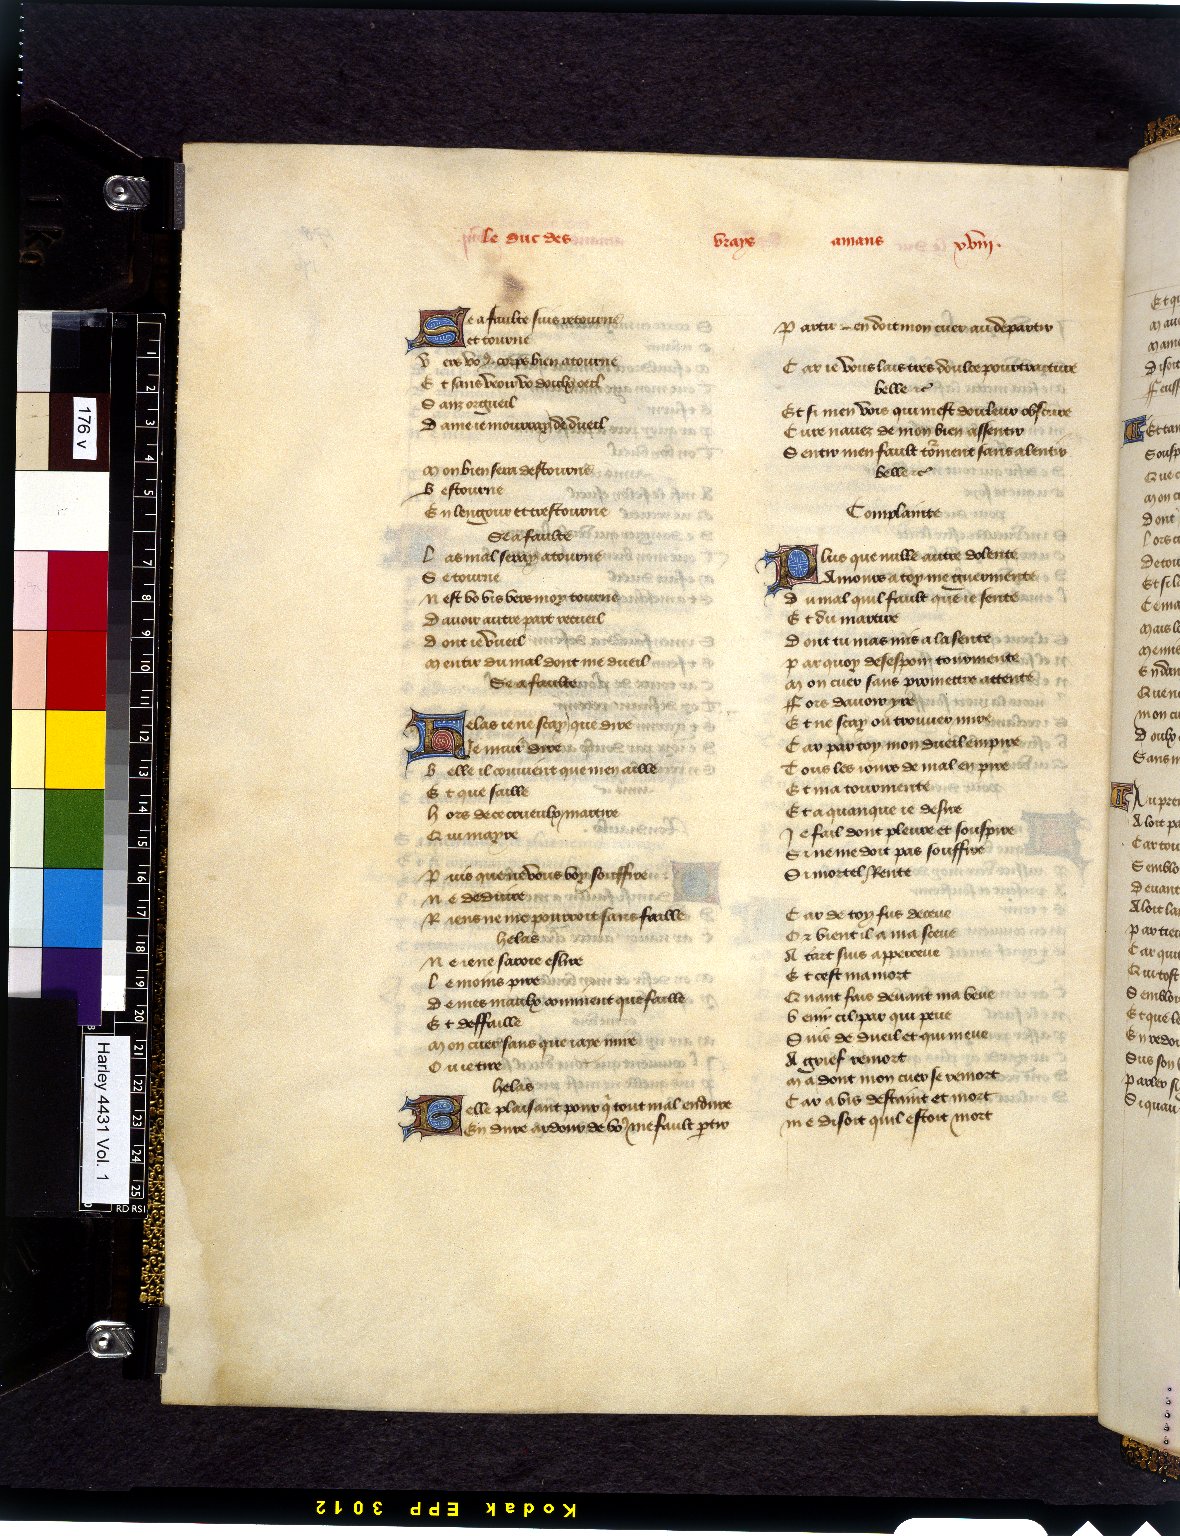 le duc des vrays amans xviij.
Se a faulte suis retourne
et tourne
Vers vo corps bien atourne
Et sans veoir vo doulx oeil
Sanz orgueil
Dame ie mourray de dueil
Mon bien sera destourne
Bestourne
En lengour et trestourne
Se a faulte
Las mal seray atourne
Se tourne
Nest vo vis vers moy tourne
Davoir autre part recueil
Dont ie vueil
Mentir du mal dont me dueil
Se a faulte
Helas ie ne scay que dire
Ne maudire
Belle il couvient que men aille
Et que saille
Hors de ce crueulx martire
Qui mayre
Puis que ne vous voy souffire
Ne deduire
Riens ne me pourroit sans faille
helas
Ne ie ne saroie eslire
Le moins pire
De mes maulx comment que faille
Et deffaille
Mon cuer sans que iaye mire
Ou ie tire
helas
Belle plaisant pour q tout mal endure
En dure ardour de vo me fault ptir
Partir – en doit mon cuer au departir
Car ie vous lais tres doulce pourtraiture
belle etc
Et si men vois qui mest douleur obscure
Cure navez de mon bien assentir
Sentir men fault torment sans alentir
belle etc
Complainte
Plus que nulle autre dolente
Amours a toy me guermente
Du mal quil fault que ie sente
Et du martire
Dont tu mas mis a la sente
Par quoy desespoir tourmente
Mon cuer sans promettre attente
Fors davoir yre
Et ne scay ou trouver mire
Car par toy mon dueil empire
Tous les iours de mal en pire
Et ma tourmente
Et a quanque ie desire
Je fail dont pleure et souspire
Si ne me doit pas souffire
Si mortel Rente
Car de toy fus deceue
Or vient il a ma sceue
A tart suis apperceue
Et cest ma mort
Quant fais devant ma veue
Venir cil par qui peue
Suis de dueil et qui meue
A grief remort
Ma dont mon cuer se remort
Car a bis destaint et mort
Me disoit quil estoit mort
176 v
Harley 4431 Vol. 1
Kodak EPP 3012